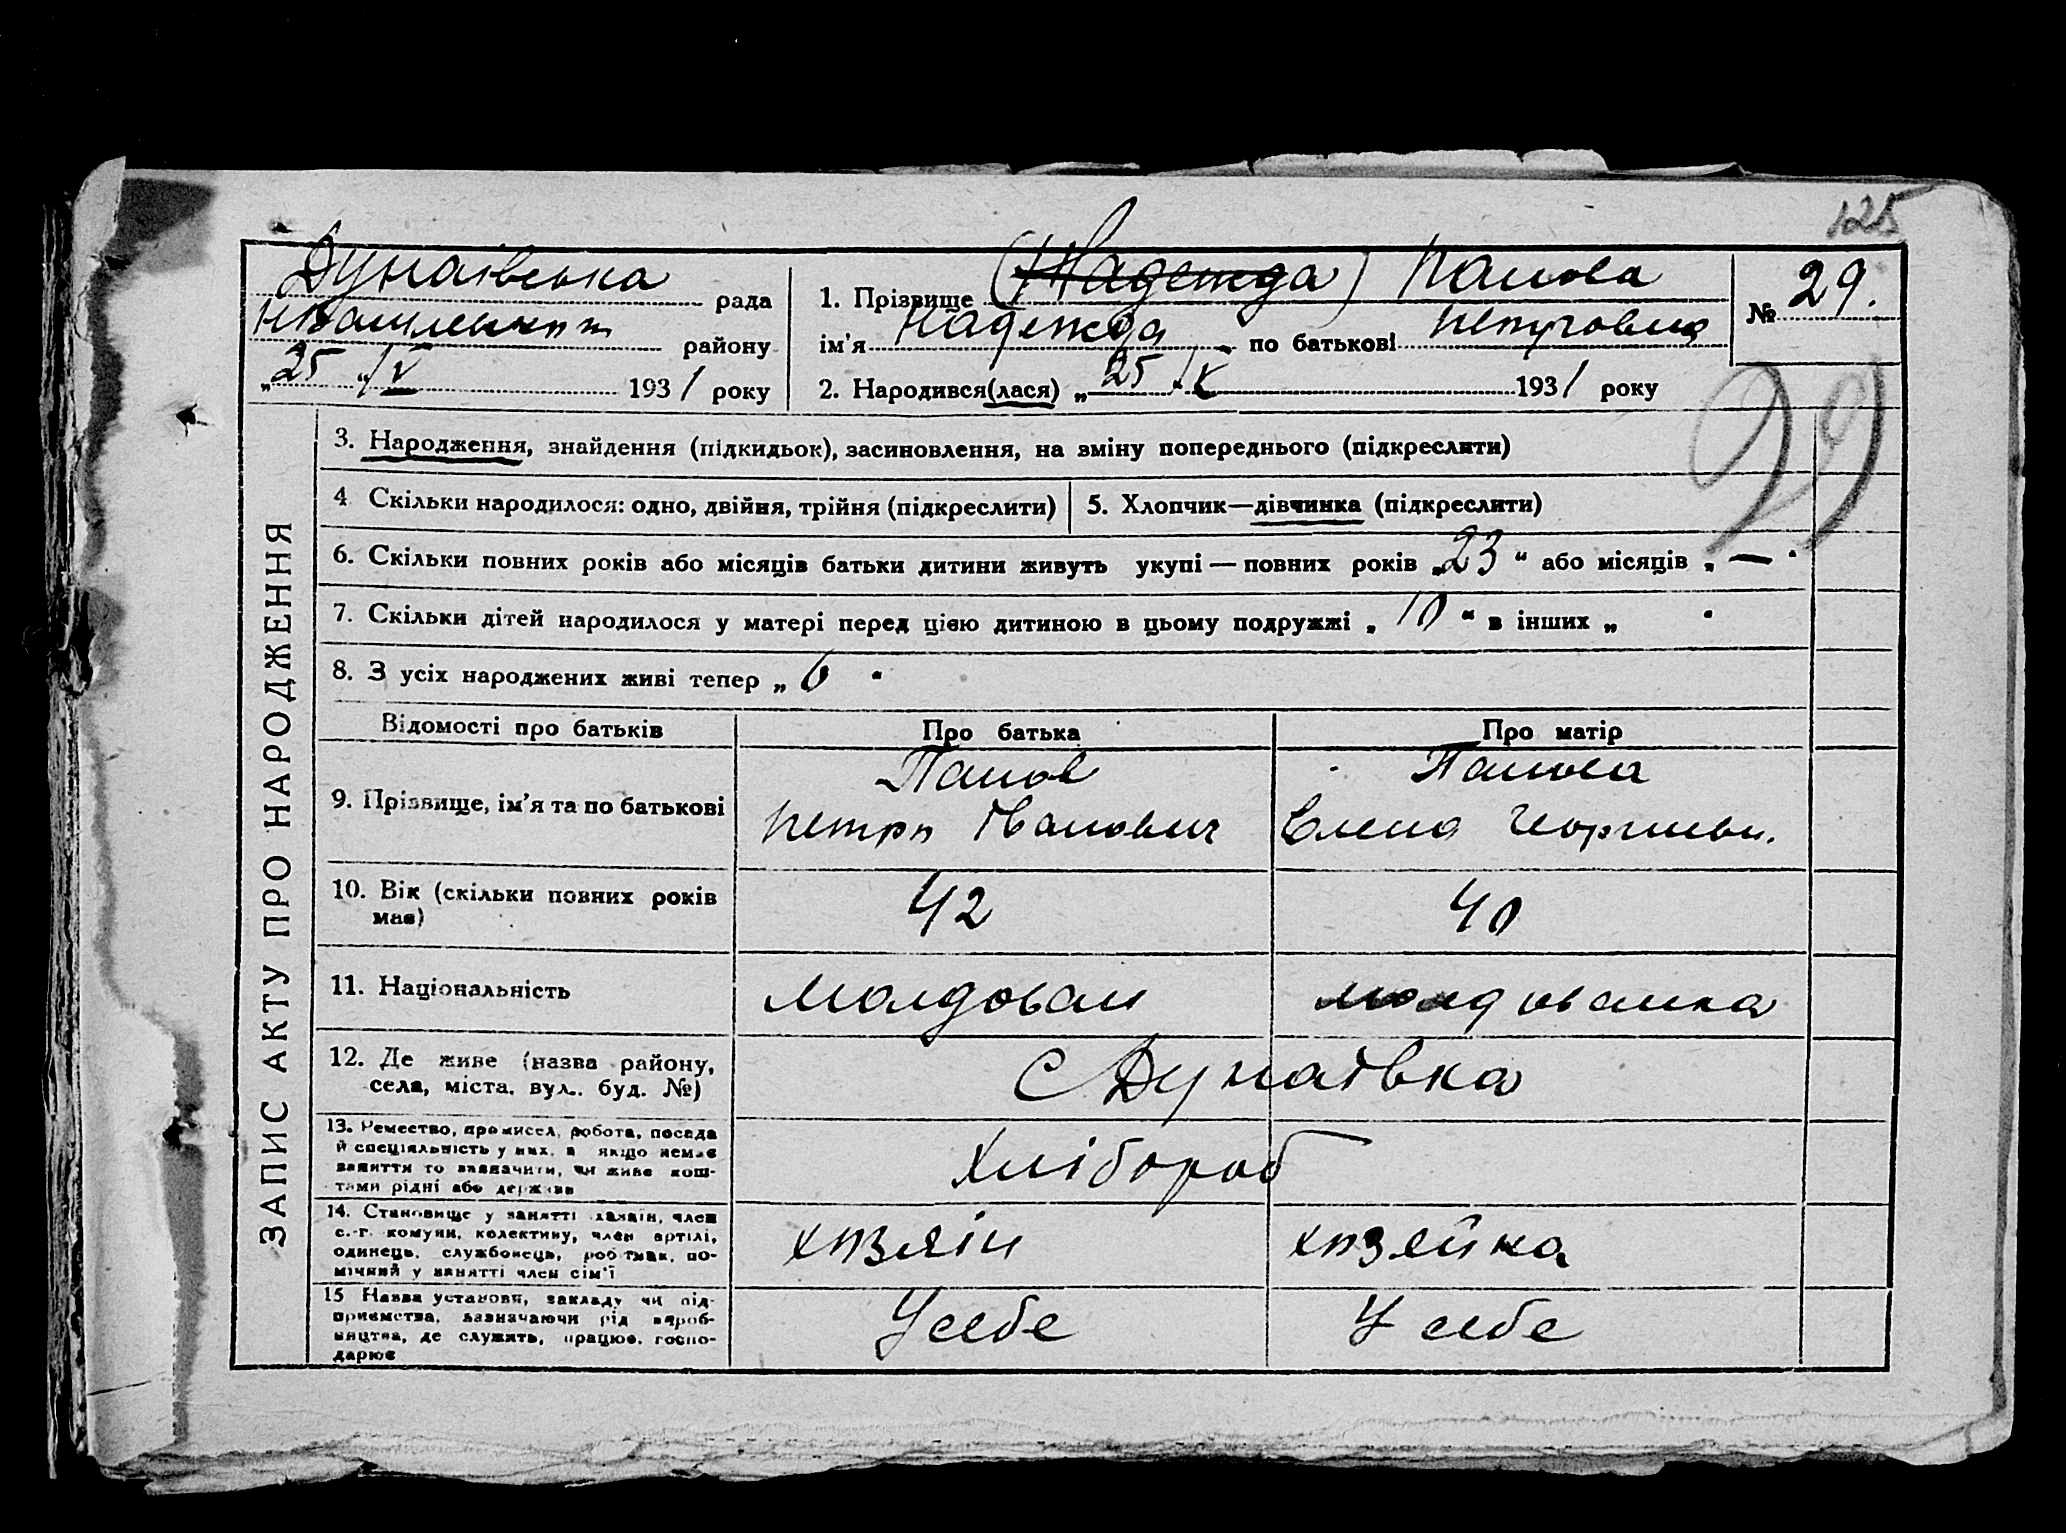 125
Дунаівська рада
району
„25 “/V 1931 року
1. Прізвище (Надежда) Панова
ім'я Надежда по батькові Петровна
2. Народився(лася) „25 “/V 1931 року
№ 29.
29
ЗАПИС АКТУ ПРО НАРОДЖЕННЯ
3. Народження, знайдення (підкидьок), засиновлення, на зміну попереднього (підкреслити)
4 Скільки народилося: одно, двійня, трійня (підкреслити)
5. Хлопчик—дівчинка (підкреслити)
6. Скільки повних років або місяців батьки дитини живуть укупі — повних років „23 “ або місяців „ — “
7. Скільки дітей народилося у матері перед цією дитиною в цьому подружжі „ 10 “ в інших „ “
8. З усіх народжених живі тепер „ 6 “
Відомості про батьків
Про батька
Про матір
9. Прізвище, ім'я та по батькові
Панов
Петро Іванович
Панова
Елена Георгиевн.
10. Вік (скільки повних років
має)
42
40
11. Національність
молдован
молдованка
12. Де живе (назва району,
села, міста, вул., буд. №)
с Дунаівка
13. Ремество, промисел, робота, посада
й спеціяльність у них, а якщо немає
заняття то зазначити, чи живе кош-
тами рідні або держави
Хлібороб
14. Становище у занятті хазяїн, член
с.-г. комуни, колективу, член артілі,
одинець, службовець, робітник, по-
мічний у занятті член сім'ї
хозяін
хозяйка
15 Назва установи, закладу чи під-
приємства, зазначаючи рід вироб-
ництва, де служить, працює, госпо-
дарює
У себе
У себе